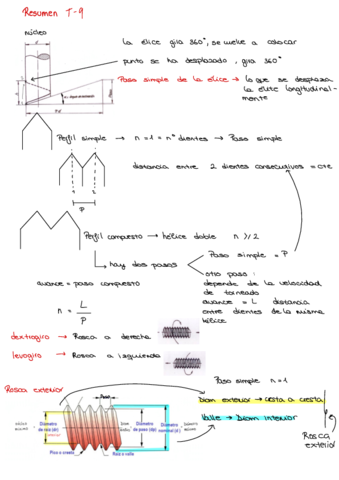 Resumen T-9
núcleo
la élice gira 360°, se vuelve a colocar
punto se ha desplazado, gira 360°
Paso simple de la elice → lo que se desplaza
la elite longitudinal-
mente
Perfil simple → n = 1 = nº dientes → Paso simple
1 2
distancia entre 2 dientes consecutivos = cte
P
Perfil compuesto → hélice doble n >/ 2
hay dos pasos
Paso simple = P
otro paso:
depende de la velocidad
de torneado
avance = L distancia
entre dientes de la misma
hélice
avance = paso compuesto
n = L / P
dextrogiro → Rosca a derecha
levogiro → Rosca a izquierda
Rosca exterior
Paso simple n=1
Paso
Diam exterior → cresta a cresta
Valle → Diam interior
Rosca
exterior
Diámetro
de raíz (dr)
Diámetro
de paso (dp)
Diámetro
nominal (d)
Pico o cresta
Raíz o valle